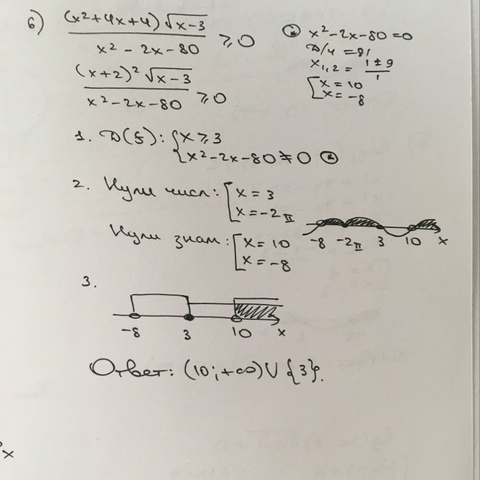 б) (x²+4x+4)√x-3 / x²-2x-80 ≥0
(x+2)²√x-3 / x²-2x-80 ≥0
* x²-2x-80=0
D/4 =81
x₁,₂ = 1±9 / 1
[x=10
x=-8
1. D(f): {x≥3
x²-2x-80≠0 *
2. Нули числ: [x=3
x=-2 II
Нули знам: [x=10
x=-8
-8 -2 II 3 10 x
3.
-8 3 10 x
Ответ: (10;+∞)∪{3}.
x